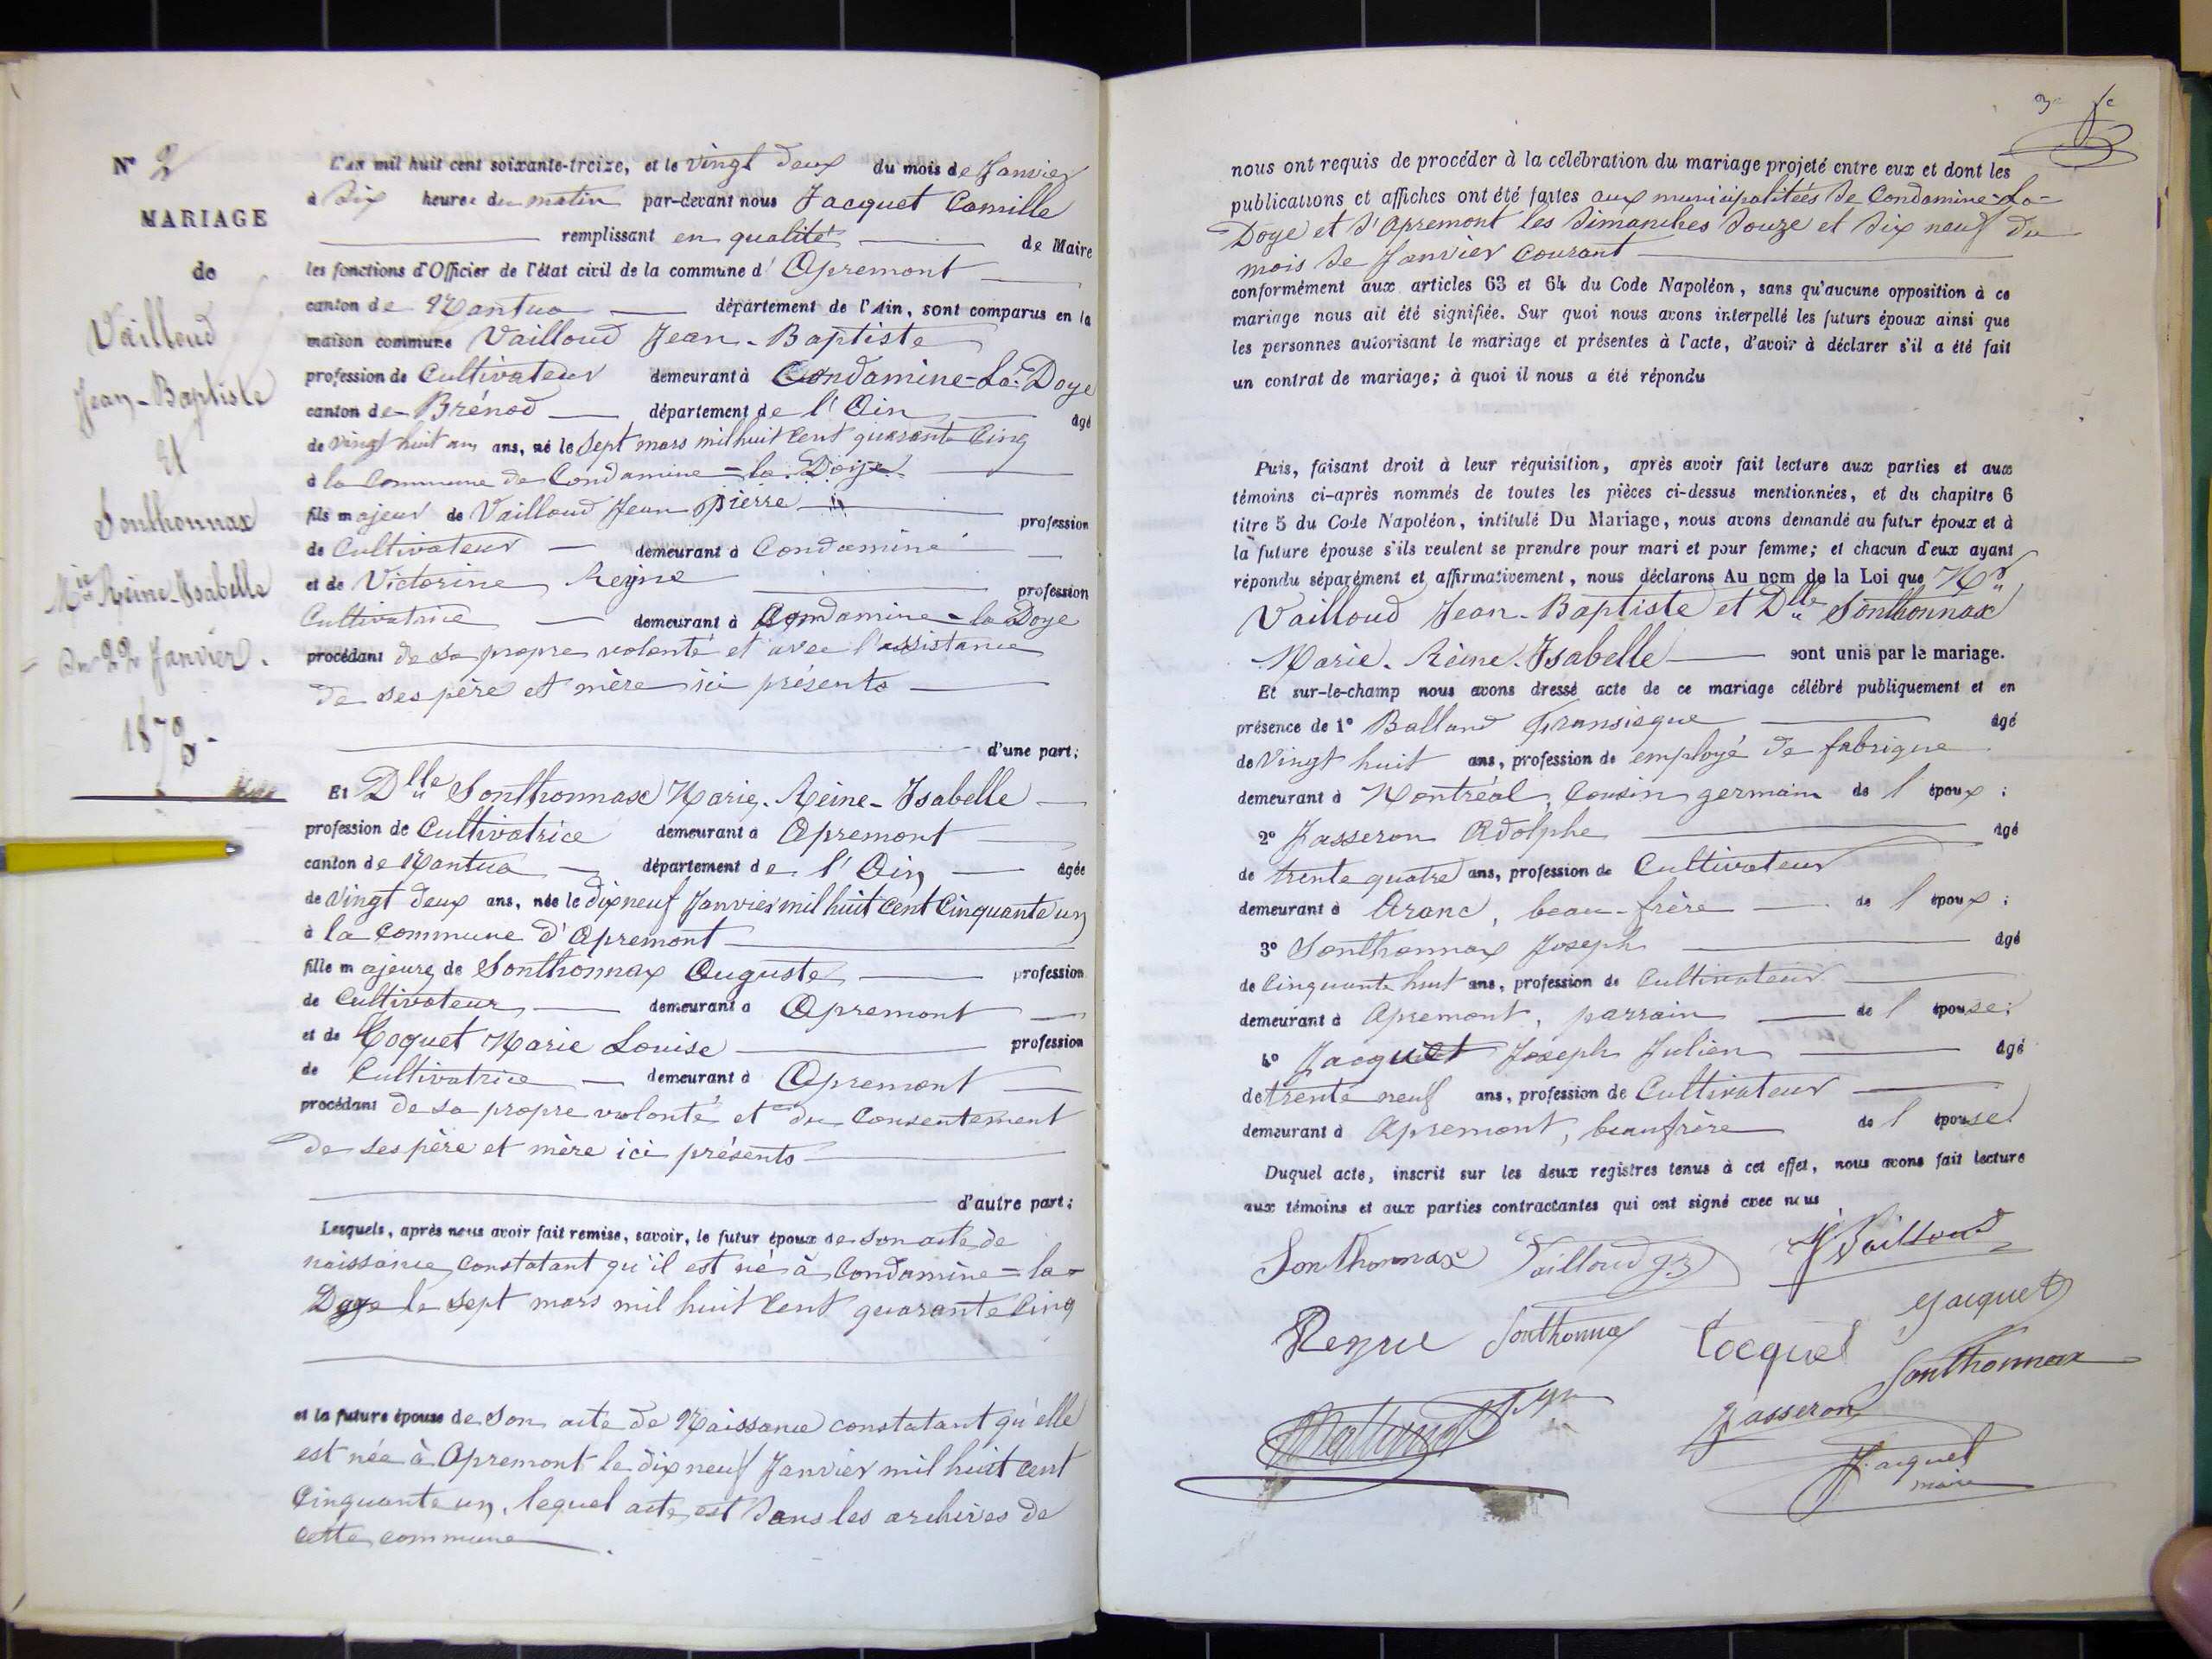 N° 2
MARIAGE
de
Vailloud
Jean-Baptiste
Et
Sonthonnax
Mie Reine-Isabelle
Du 22 Janvier.
1873
L'an mil huit cent soixante-treize, et le vingt deux du mois de Janvier
à dix heures du matin par-devant nous Jacquet Camille
remplissant en qualité de Maire
les fonctions d'Officier de l'état civil de la commune d' Apremont
canton de Nantua département de l'Ain, sont comparus en la
maison commune Vailloud Jean-Baptiste
profession de Cultivateur demeurant à Condamine-La-Doye
canton de Brénod département de l'Ain âgé
de vingt huit ans ans, né le sept mars mil huit cent quarante cinq
à la Commune de Condamine-la-Doye
fils majeur de Vailloud Jean Pierre profession
de Cultivateur demeurant à Condamine
et de Victorine Reyne profession
Cultivatrice demeurant à Condamine-la-Doye
procédant de sa propre volonté et avec l'assistance
de ses père et mère ici présents
d'une part;
Et Dlle Sonthonnax Marie-Reine-Isabelle
profession de Cultivatrice demeurant à Apremont
canton de Nantua département de l'Ain âgée
de vingt deux ans, née le dix neuf Janvier mil huit cent cinquante un
à la Commune d'Apremont
fille majeure de Sonthonnax Auguste profession
de Cultivateur demeurant à Apremont
et de Coquet Marie Louise profession
de Cultivatrice demeurant à Apremont
procédant de sa propre volonté et du Consentement
de ses père et mère ici présents
d'autre part;
Lesquels, après nous avoir fait remise, savoir, le futur époux de son acte de
naissance constatant qu'il est né à Condamine-la-
Doye le sept mars mil huit cent quarante cinq
et la future épouse de son acte de Naissance constatant qu'elle
est née à Apremont le dix neuf Janvier mil huit cent
cinquante un, lequel acte est dans les archives de
cette commune.
nous ont requis de procéder à la célébration du mariage projeté entre eux et dont les
publications et affiches ont été faites aux municipalitées de Condamine-La-
Doye et d'Apremont les dimanches douze et dix neuf du
mois de Janvier courant
conformément aux articles 63 et 64 du Code Napoléon, sans qu'aucune opposition à ce
mariage nous ait été signifiée. Sur quoi nous avons interpellé les futurs époux ainsi que
les personnes autorisant le mariage et présentes à l'acte, d'avoir à déclarer s'il a été fait
un contrat de mariage; à quoi il nous a été répondu
Puis, faisant droit à leur réquisition, après avoir fait lecture aux parties et aux
témoins ci-après nommés de toutes les pièces ci-dessus mentionnées, et du chapitre 6
titre 5 du Code Napoléon, intitulé Du Mariage, nous avons demandé au futur époux et à
la future épouse s'ils veulent se prendre pour mari et pour femme; et chacun d'eux ayant
répondu séparément et affirmativement, nous déclarons Au nom de la Loi que Mr
Vailloud Jean-Baptiste et Dlle Sonthonnax
Marie-Reine-Isabelle sont unis par le mariage.
Et sur-le-champ nous avons dressé acte de ce mariage célébré publiquement et en
présence de 1° Balland Fransisque âgé
de Vingt huit ans, profession de employé de fabrique
demeurant à Montréal, Cousin germain de l époux;
2° Jasseron Adolphe âgé
de trente quatre ans, profession de Cultivateur
demeurant à Aranc, beau-frère de l époux;
3° Sonthonnax Joseph âgé
de cinquante huit ans, profession de Cultivateur
demeurant à Apremont, parrain de l épouse;
4° Jacquet Joseph Julien âgé
de trente neuf ans, profession de Cultivateur
demeurant à Apremont, beaufrère de l épouse
Duquel acte, inscrit sur les deux registres tenus à cet effet, nous avons fait lecture
aux témoins et aux parties contractantes qui ont signé avec nous
Sonthonnax Vailloud J Vailloud
Reyne Sonthonnax Coquet Jacquet
Jasseron Sonthonnax
Jacquet
maire